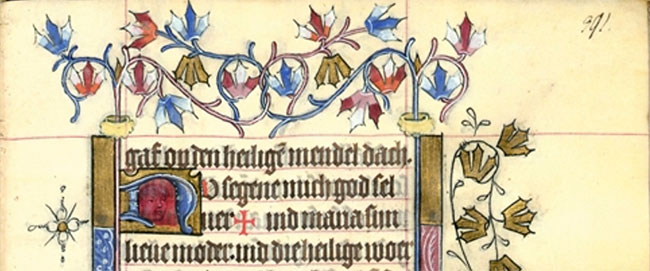 391.
gaf op den heiligē mendel dach.
NU segene mich god sel
uer ✝ ind maria sijn
lieue moder. ind die heilige woer